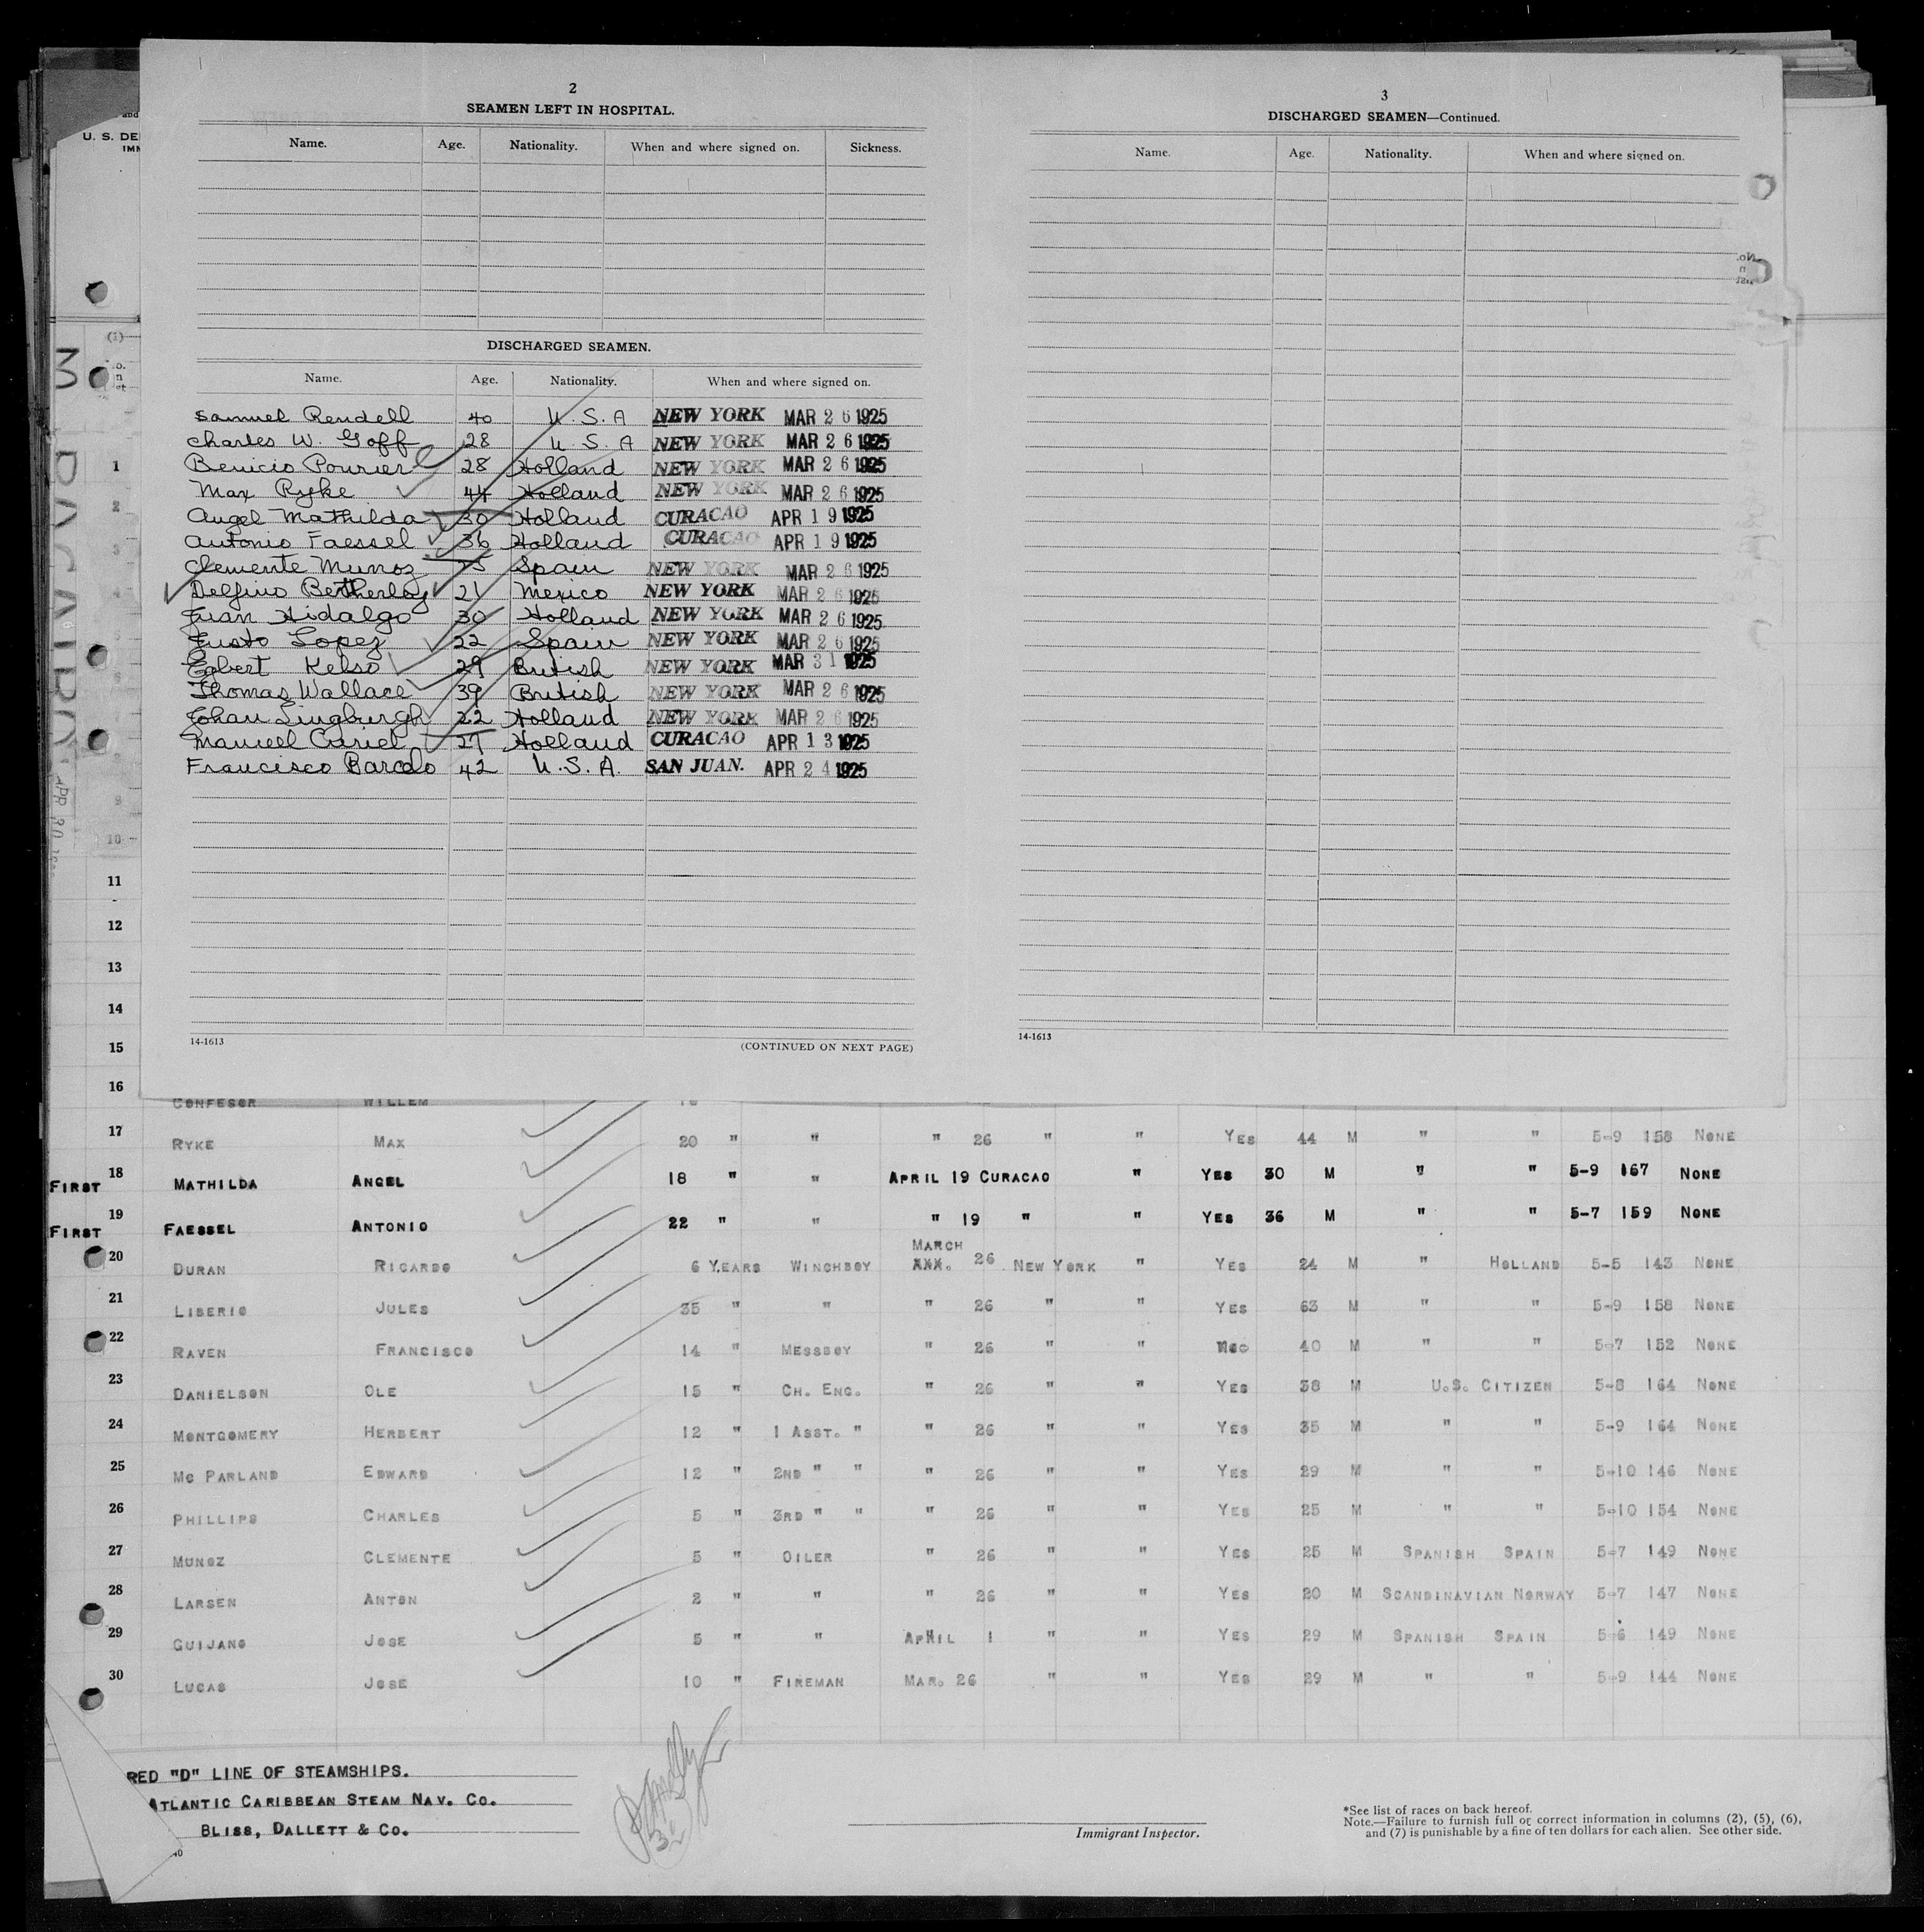 2
SEAMEN LEFT IN HOSPITAL.
Name. Age. Nationality. When and where signed on. Sickness.
DISCHARGED SEAMEN.
Name. Age. Nationality. When and where signed on.
Samuel Rendell 40 U.S.A NEW YORK MAR 26 1925
Charles W. Goff 28 U S A NEW YORK MAR 26 1925
Benicio Pourier 28 Holland NEW YORK MAR 26 1925
Max Ryke 44 Holland NEW YORK MAR 26 1925
Angel Mathilda 30 Holland CURACAO APR 19 1925
Antonio Faessel 36 Holland CURACAO APR 19 1925
Clemente Munoz 25 Spain NEW YORK MAR 26 1925
Delfino 21 Mexico NEW YORK MAR 26 1925
Juan Hidalgo 30 Holland NEW YORK MAR 26 1925
Justo Lopez 22 Spain NEW YORK MAR 26 1925
Egbert Kelso 29 British NEW YORK MAR 31 1925
Thomas Wallace 39 British NEW YORK MAR 26 1925
Johan Lingburgh 22 Holland NEW YORK MAR 26 1925
Manuel Curiel 27 Holland CURACAO APR 13 1925
Francisco Barcelo 42 U.S.A. SAN JUAN. APR 24 1925
14-1613
(CONTINUED ON NEXT PAGE)
3
DISCHARGED SEAMEN—Continued.
Name. Age. Nationality. When and where signed on.
14-1613
U. S. DE
IMM
(1)
3
1
2
3
9
10
11
12
13
14
15
16 CONFESOR WILLEM
17 RYKE MAX 20 " " " 26 " " YES 44 M " " 5-9 158 NONE
FIRST 18 MATHILDA ANGEL 18 " " APRIL 19 CURACAO " YES 30 M " " 5-9 167 NONE
FIRST 19 FAESSEL ANTONIO 22 " " " 19 " " YES 36 M " " 5-7 159 NONE
MARCH
20 DURAN RICARDO 6 YEARS WINCHBOY XXX. 26 NEW YORK " YES 24 M " HOLLAND 5-5 143 NONE
21 LIBERIO JULES 35 " " " 26 " " YES 63 M " " 5-9 158 NONE
22 RAVEN FRANCISCO 14 " MESSBOY " 26 " " 40 M " " 5-7 152 NONE
23 DANIELSON OLE 15 " CH. ENG. " 26 " " YES 38 M U.S. CITIZEN 5-8 164 NONE
24 MONTGOMERY HERBERT 12 " 1 ASST. " " 26 " " YES 35 M " " 5-9 164 NONE
25 MC PARLAND EDWARD 12 " 2ND " " " 26 " " YES 29 M " " 5-10 146 NONE
26 PHILLIPS CHARLES 5 " 3RD " " " 26 " " YES 25 M " " 5-10 154 NONE
27 MUNOZ CLEMENTE 5 " OILER " 26 " " YES 25 M SPANISH SPAIN 5-7 149 NONE
28 LARSEN ANTON 2 " " " 26 " " YES 20 M SCANDINAVIAN NORWAY 5-7 147 NONE
29 GUIJANO JOSE 5 " " APRIL 1 " " YES 29 M SPANISH SPAIN 5-6 149 NONE
30 LUCAS JOSE 10 " FIREMAN MAR. 26 " " YES 29 M " " 5-9 144 NONE
RED "D" LINE OF STEAMSHIPS.
ATLANTIC CARIBBEAN STEAM NAV. CO.
BLISS, DALLETT & CO.
Immigrant Inspector.
*See list of races on back hereof.
Note.—Failure to furnish full or correct information in columns (2), (5), (6),
and (7) is punishable by a fine of ten dollars for each alien. See other side.